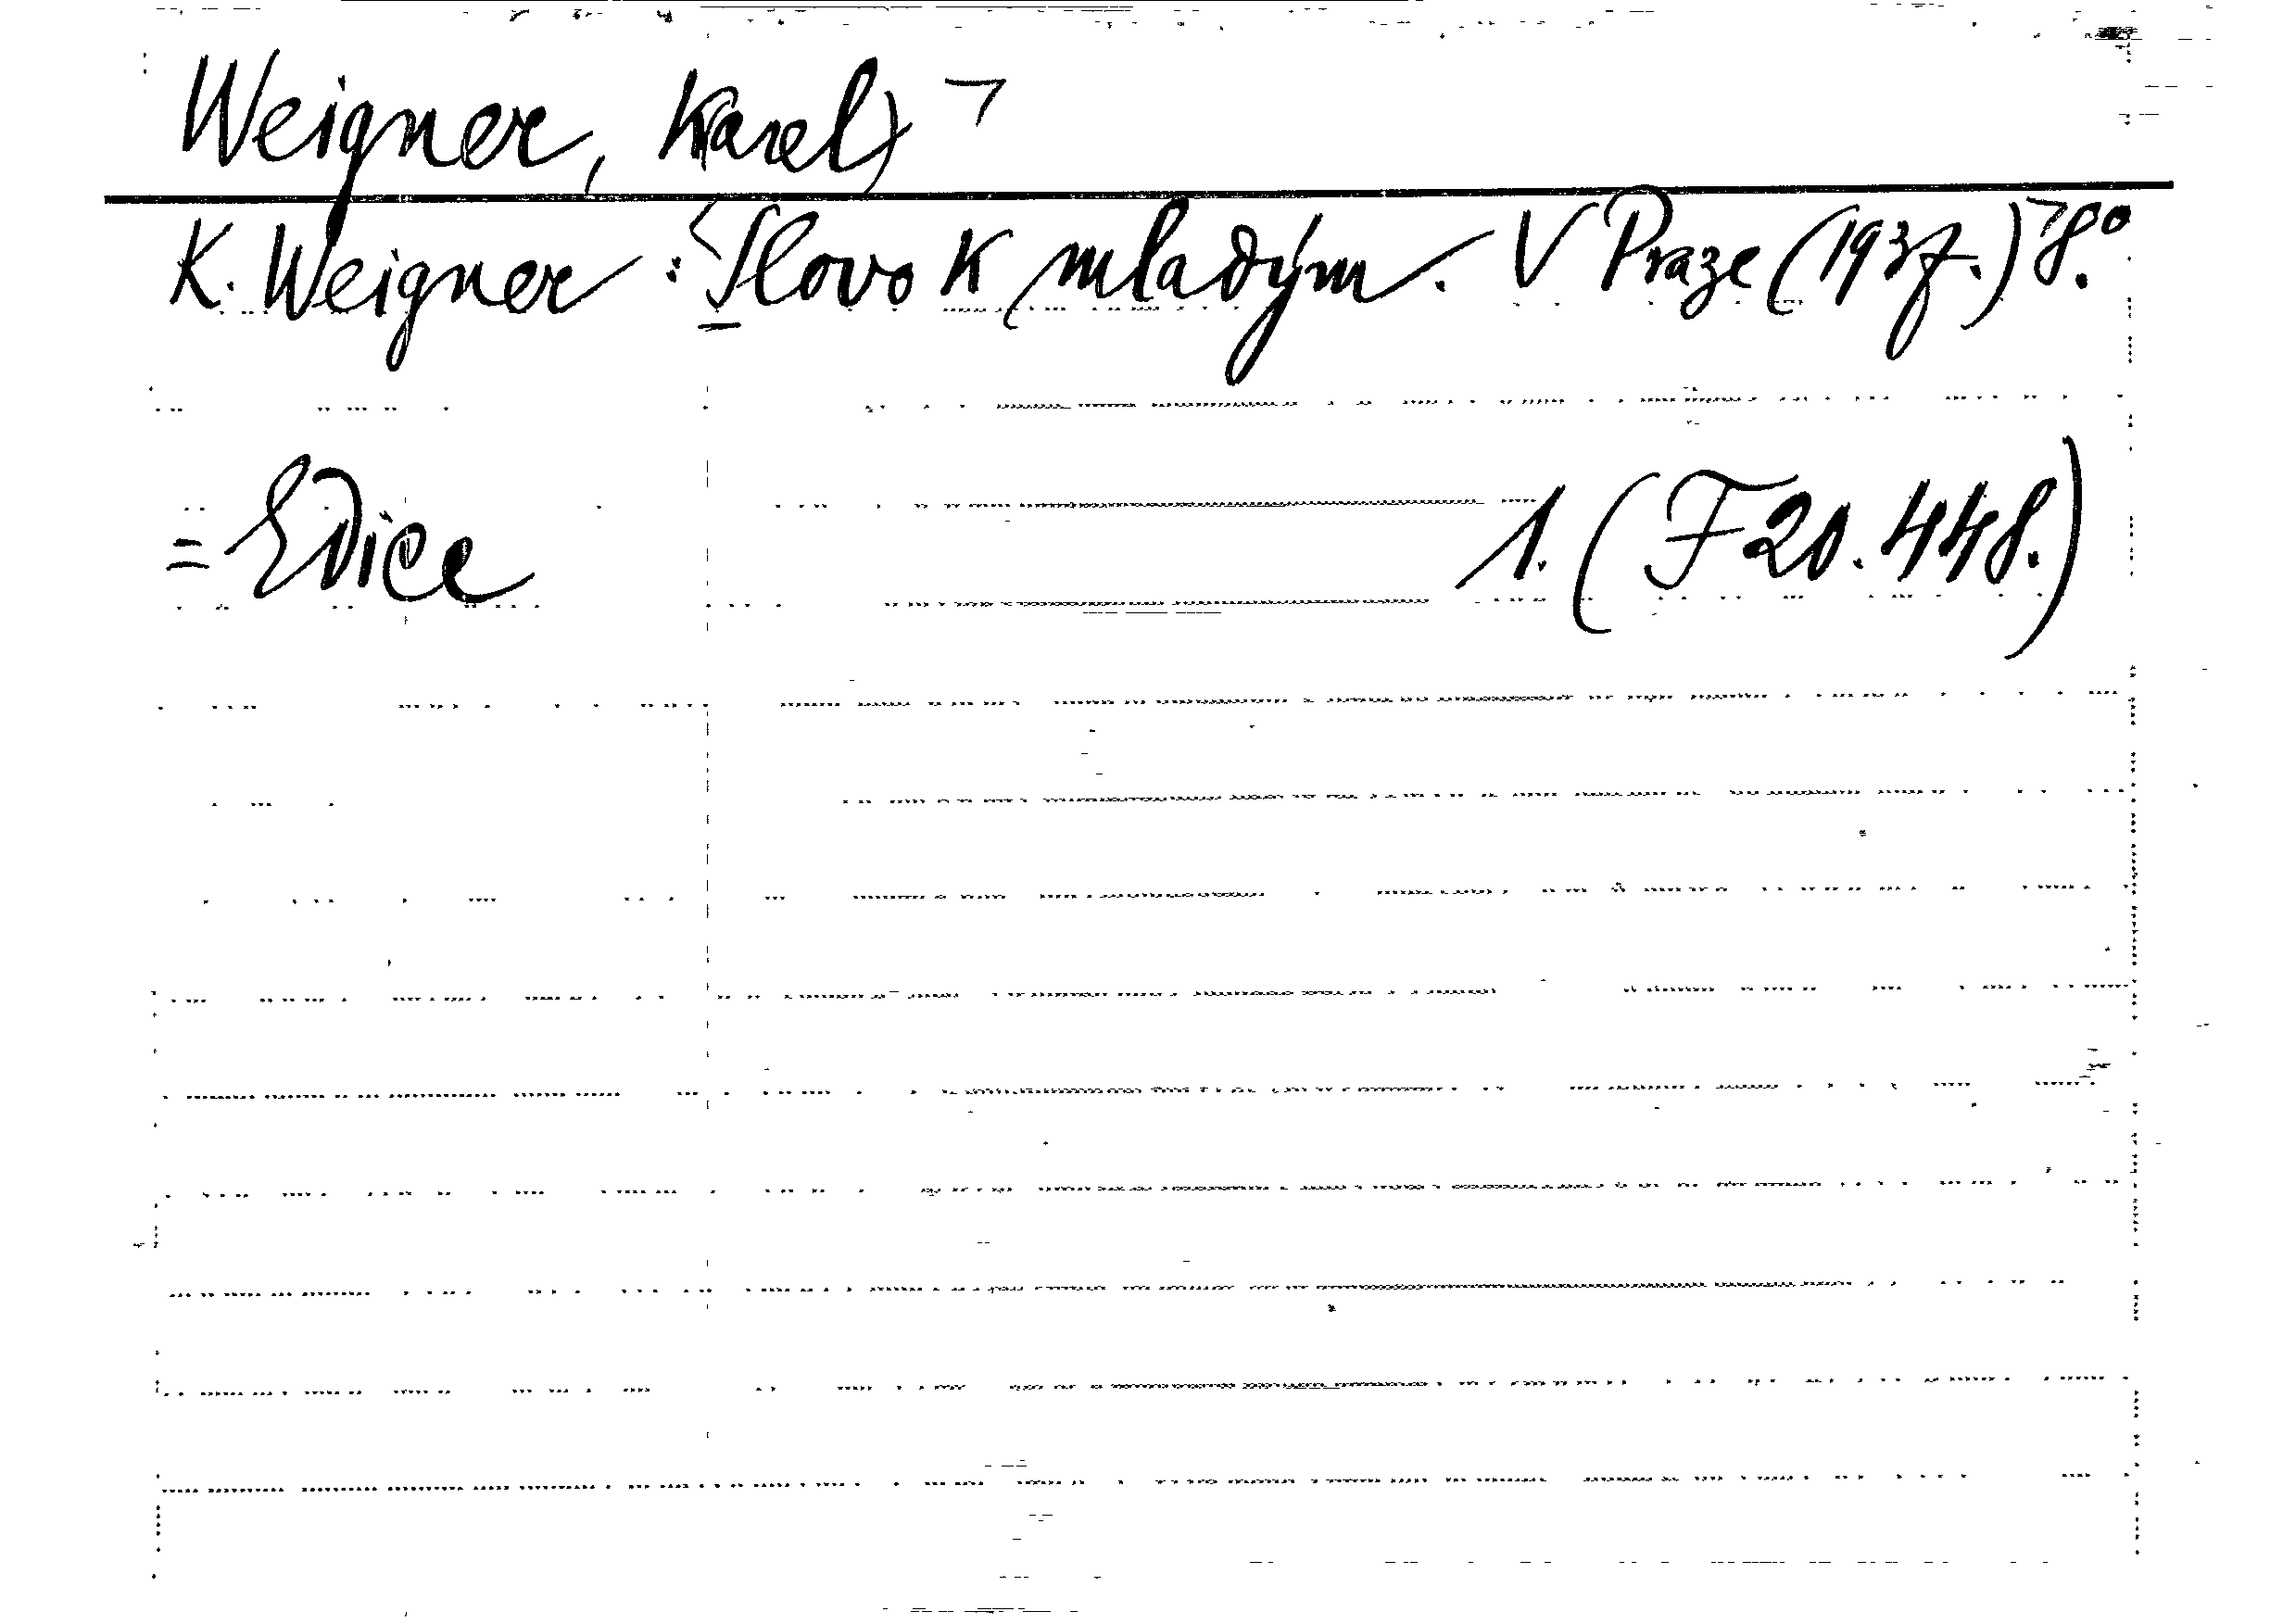 Weigner, Karel
K. Weigner: Slovo k mladým. V Praze (1937.) 8.°
= Edice 1. (F 20.448.)